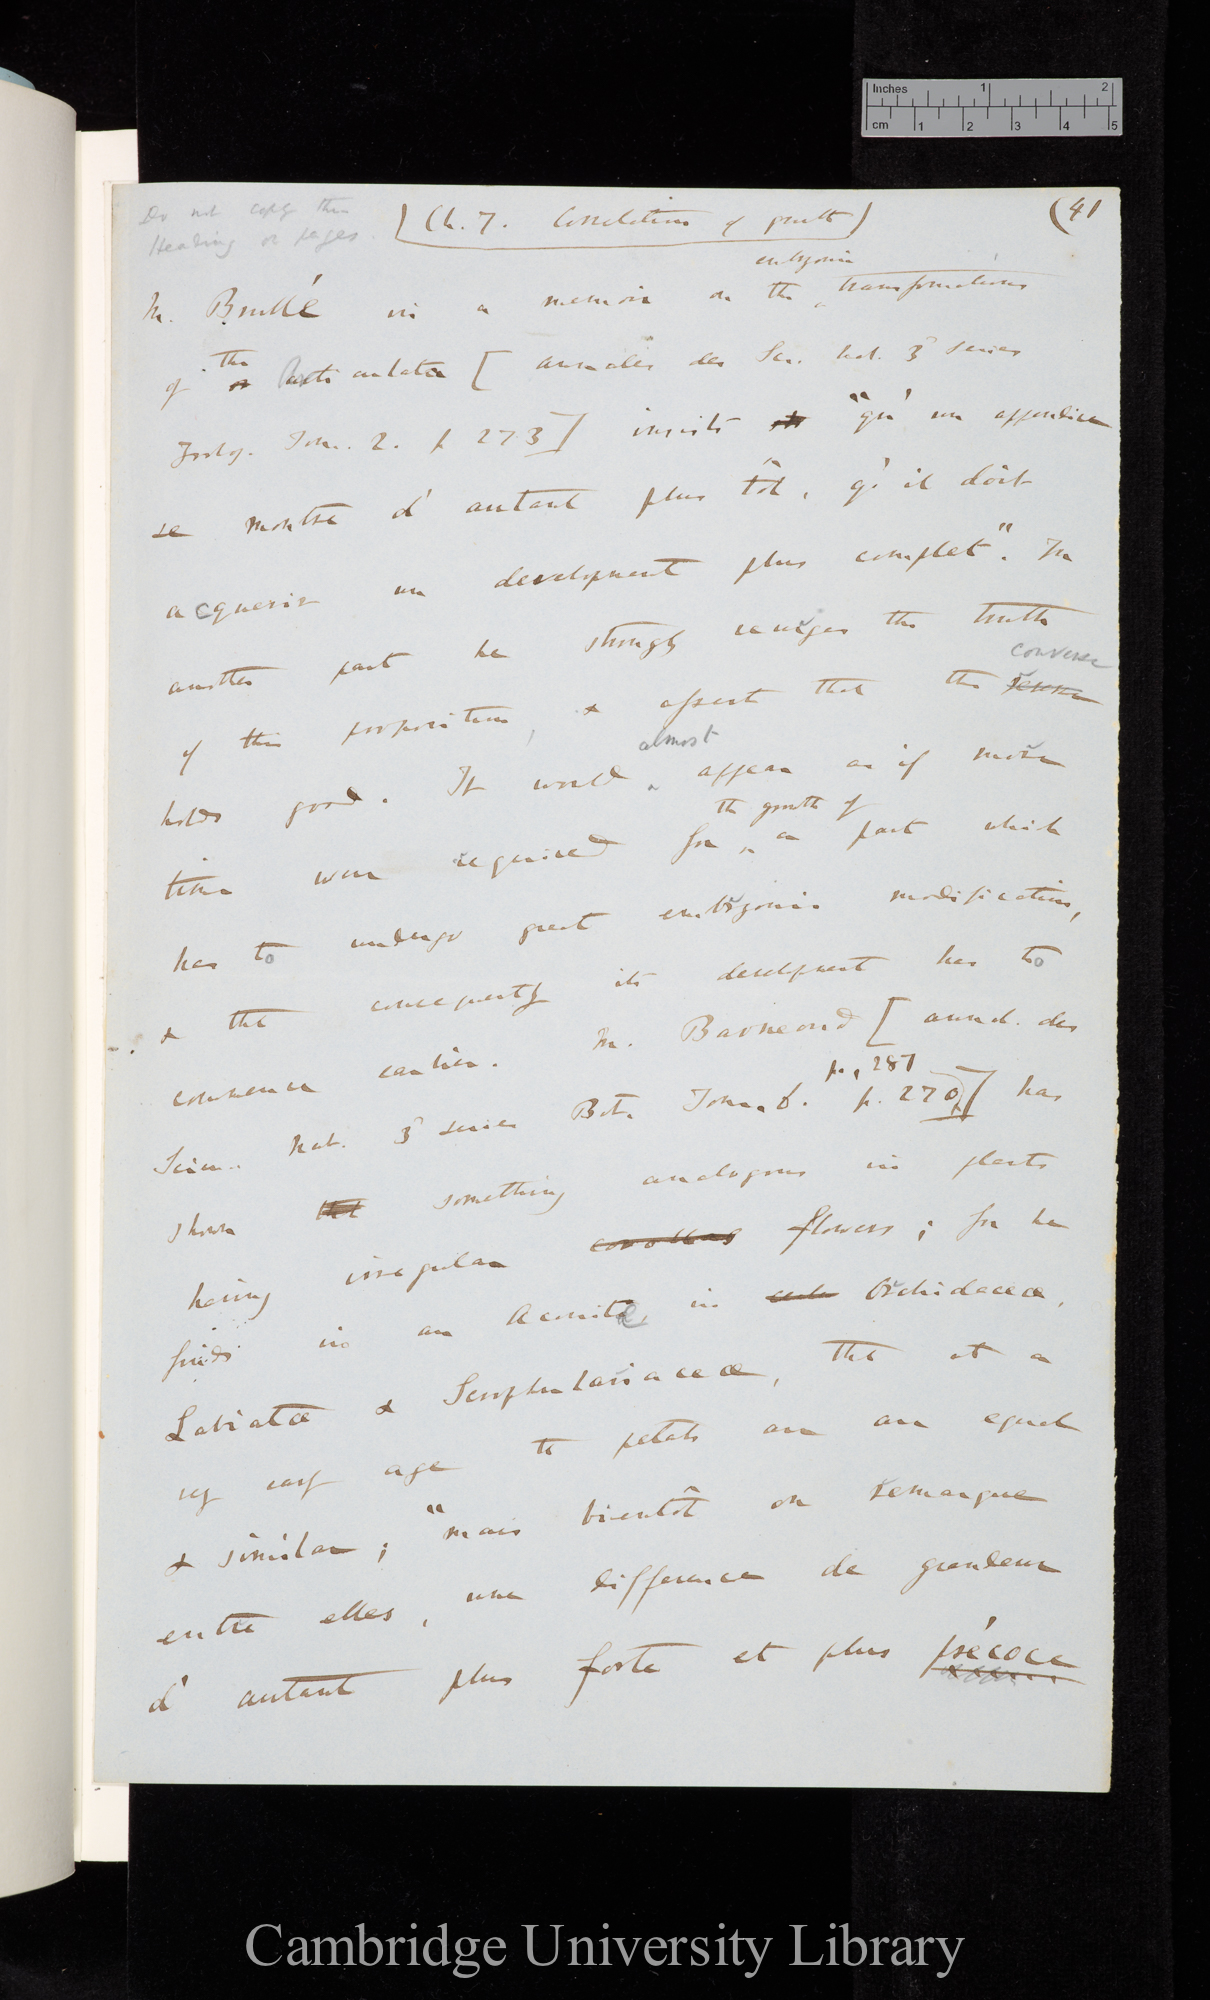 Do not copy this
Heading or pages.
(Ch. 7. Correlation of growth)
(41
embryonic
M. Brullé in a memoir on the transformations
the
of Articulata [Annales des Sci. Nat. 3 series
Zoolog. Tom. 2. p 273] insists "qu'un appendice
se montre d'autant plus tôt, q' il doit
acquerir un development plus complet". In
another part he strongly urges the truth
converse
of this proposition, & assert that the
almost
holds good. It would appear as if more
the growth of
time were required for a part which
has to undergo great embryonic modification,
& that consequently its development has to
commence earlier. M. Barneoud [Annal. des
p. 287
Scien. Nat. 3 series Bot. Tom. 6. p. 270] has
shown that something analogous in plants
having irregular corollas flowers; for he
finds in an Aconite, in Orchidaceæ,
Labiatæ & Scrophulariaceæ, that at a
very early age the petals are are equal
& similar; "mais bientôt on remarque
entre elles, une difference de grandeur
d'autant plus forte et plus précoce
Inches 1 2
cm 1 2 3 4 5
Cambridge University Library